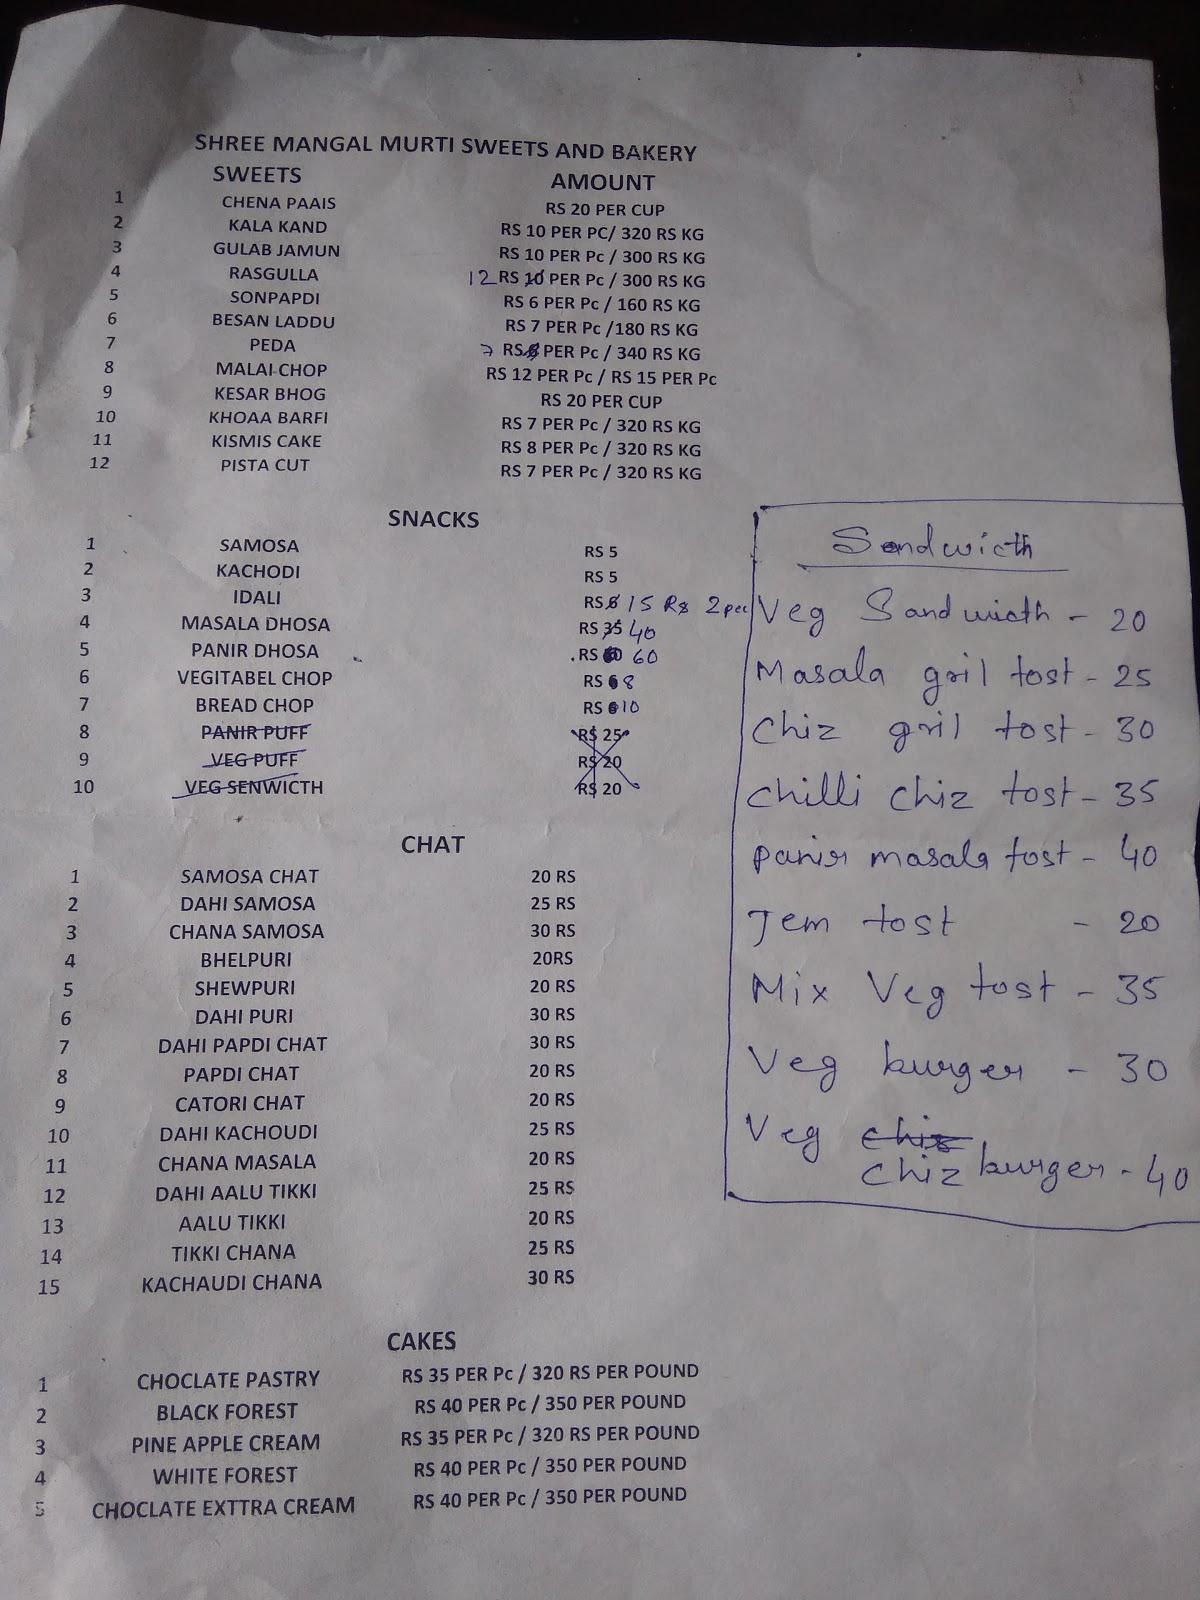 SHREE MANGAL MURTI SWEETS AND BAKERY
SWEETS AMOUNT
1 CHENA PAAIS RS 20 PER CUP
2 KALA KAND RS 10 PER PC/ 320 RS KG
3 GULAB JAMUN RS 10 PER Pc / 300 RS KG
4 RASGULLA 12 RS 10 PER Pc / 300 RS KG
5 SONPAPDI RS 6 PER Pc / 160 RS KG
6 BESAN LADDU RS 7 PER Pc /180 RS KG
7 PEDA 7 RS PER Pc / 340 RS KG
8 MALAI CHOP RS 12 PER Pc / RS 15 PER Pc
9 KESAR BHOG RS 20 PER CUP
10 KHOAA BARFI RS 7 PER Pc / 320 RS KG
11 KISMIS CAKE RS 8 PER Pc / 320 RS KG
12 PISTA CUT RS 7 PER Pc / 320 RS KG
SNACKS
1 SAMOSA RS 5
2 KACHODI RS 5
3 IDALI RS 6 15 Rs 2 pec
4 MASALA DHOSA RS 35 40
5 PANIR DHOSA RS 60
6 VEGITABEL CHOP RS 6 8
7 BREAD CHOP RS 6 10
8 PANIR PUFF RS 25
9 VEG PUFF RS 20
10 VEG SENWICTH RS 20
CHAT
1 SAMOSA CHAT 20 RS
2 DAHI SAMOSA 25 RS
3 CHANA SAMOSA 30 RS
4 BHELPURI 20RS
5 SHEWPURI 20 RS
6 DAHI PURI 30 RS
7 DAHI PAPDI CHAT 30 RS
8 PAPDI CHAT 20 RS
9 CATORI CHAT 20 RS
10 DAHI KACHOUDI 25 RS
11 CHANA MASALA 20 RS
12 DAHI AALU TIKKI 25 RS
13 AALU TIKKI 20 RS
14 TIKKI CHANA 25 RS
15 KACHAUDI CHANA 30 RS
CAKES
1 CHOCLATE PASTRY RS 35 PER Pc / 320 RS PER POUND
2 BLACK FOREST RS 40 PER Pc / 350 PER POUND
3 PINE APPLE CREAM RS 35 PER Pc / 320 RS PER POUND
4 WHITE FOREST RS 40 PER Pc / 350 PER POUND
5 CHOCLATE EXTTRA CREAM RS 40 PER Pc / 350 PER POUND
Sandwicth
Veg Sandwicth - 20
Masala gril tost - 25
Chiz gril tost - 30
Chilli chiz tost - 35
Panir masala tost - 40
Jem tost - 20
Mix Veg tost - 35
Veg burger - 30
Veg chiz
chiz burger - 40